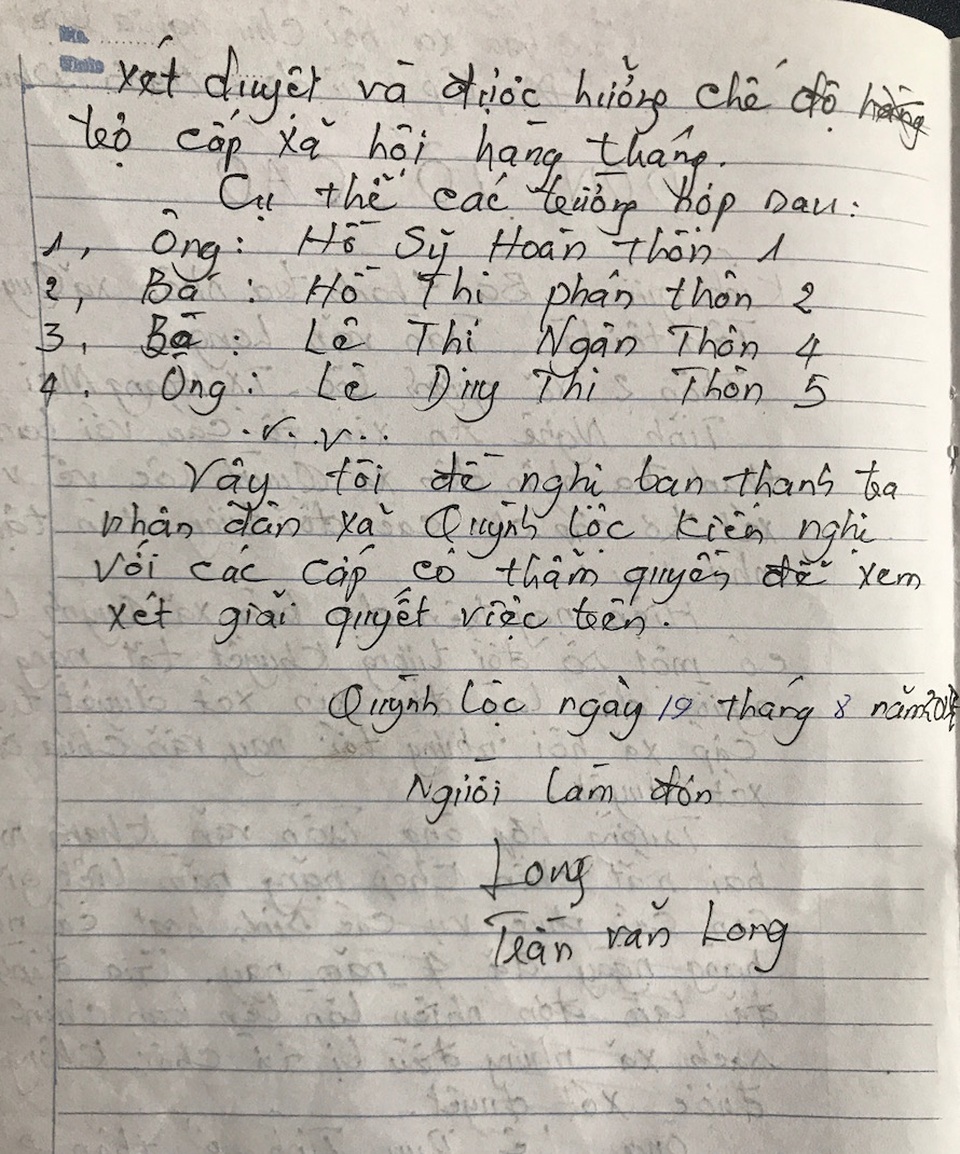 xét duyệt và được hưởng chế độ
trợ cấp xã hội hạng tháng.
Cụ thể các trường hợp sau:
1, Ông: Hồ Sỹ Hoàn Thôn 1
2, Bà: Hồ Thị phân thôn 2
3, Bà: Lê Thị Ngân Thôn 4
4. Ông: Lê Duy Thi Thôn 5
.v.v..
Vậy tôi đề nghị ban thanh tra
nhân dân xã Quỳnh Lộc kiến nghị
với các cấp có thẩm quyền để xem
xét giải quyết việc trên.
Quỳnh Lộc ngày 19 tháng 8 năm
Người làm đơn
Long
Trần văn Long